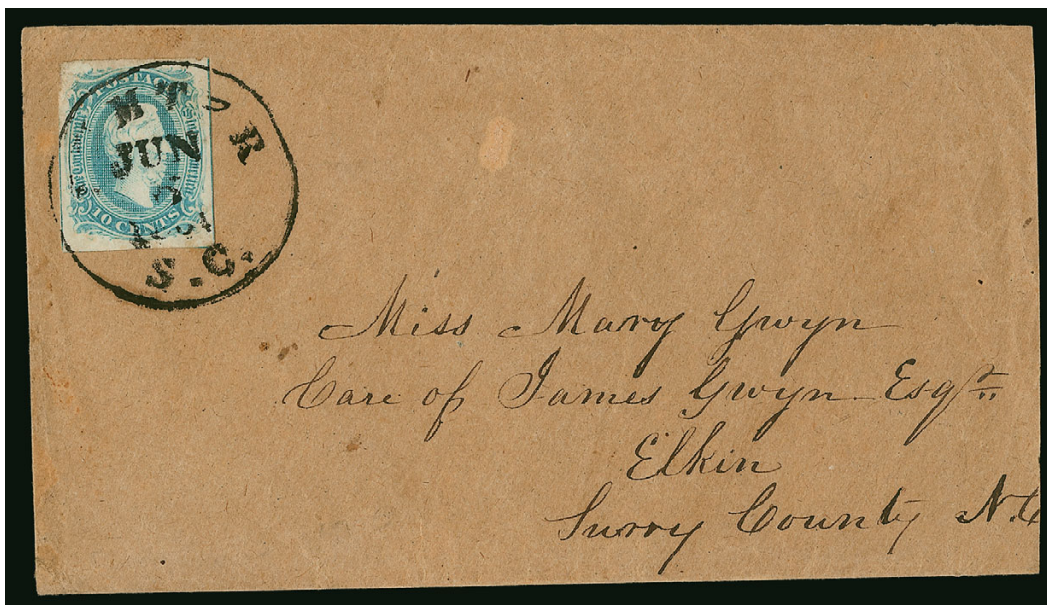 POSTAGE
10 CENTS
MT R
JUN
S.C.
Miss Mary Gwyn
Care of James Gwyn Esqr
Elkin
Surry County N.C